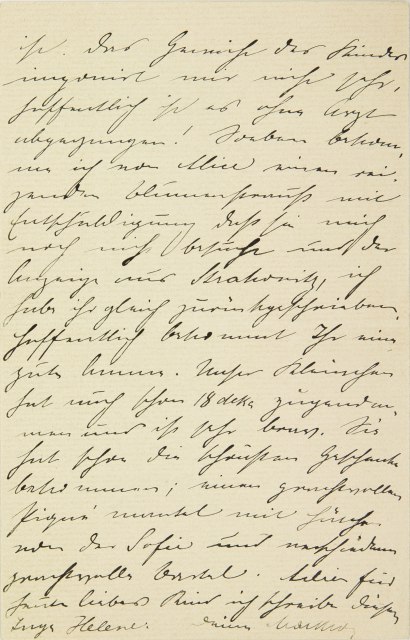 ist. Das Gewicht des Kindes
imponirt mir nicht sehr,
hoffentlich ist es ohne Arzt
abgegangen! Soeben bekom-
me ich von Alice einen rei-
zenden Blumenstrauss mit
Entschuldigung dass sie mich
noch nicht besucht und der
Anzeige aus Strakonitz, ich
habe ihr gleich zurückgeschrieben.
Hoffentlich bekommt Ihr eine
gute Amme. Unser Kleinchen
hat auch schon 18 deka zugenom-
men und ist sehr brav. Sie
hat schon die schönsten Geschenke
bekommen; einen prachtvollen
Piqué mantel mit
von der Sofie und verschiedene
prachtvolle Adieu für
heute liebes Kind ich schreibe dieser
Tage Helene. Deine